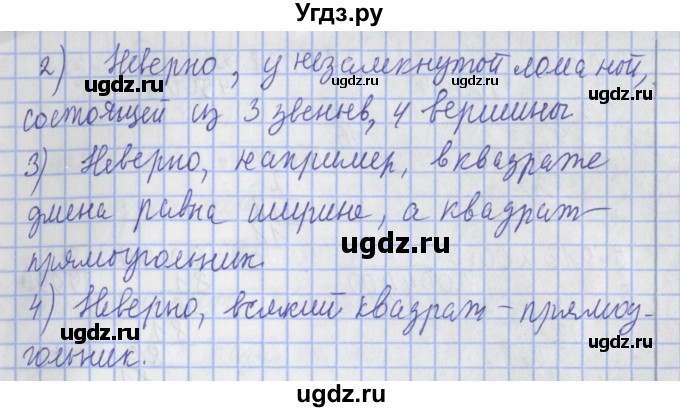 Угдз.ру
2) Неверно, у незамкнутой ломаной,
состоящей из 3 звеньев, 4 вершины
3) Неверно, например, в квадрате
длина равна ширине, а квадрат –
прямоугольник.
4) Неверно, всякий квадрат – прямоу-
гольник.
ugdz.ru ugdz.ru
ugdz.ru ugdz.ru
ugdz.ru
ugdz.ru ugdz.ru
ugdz.ru